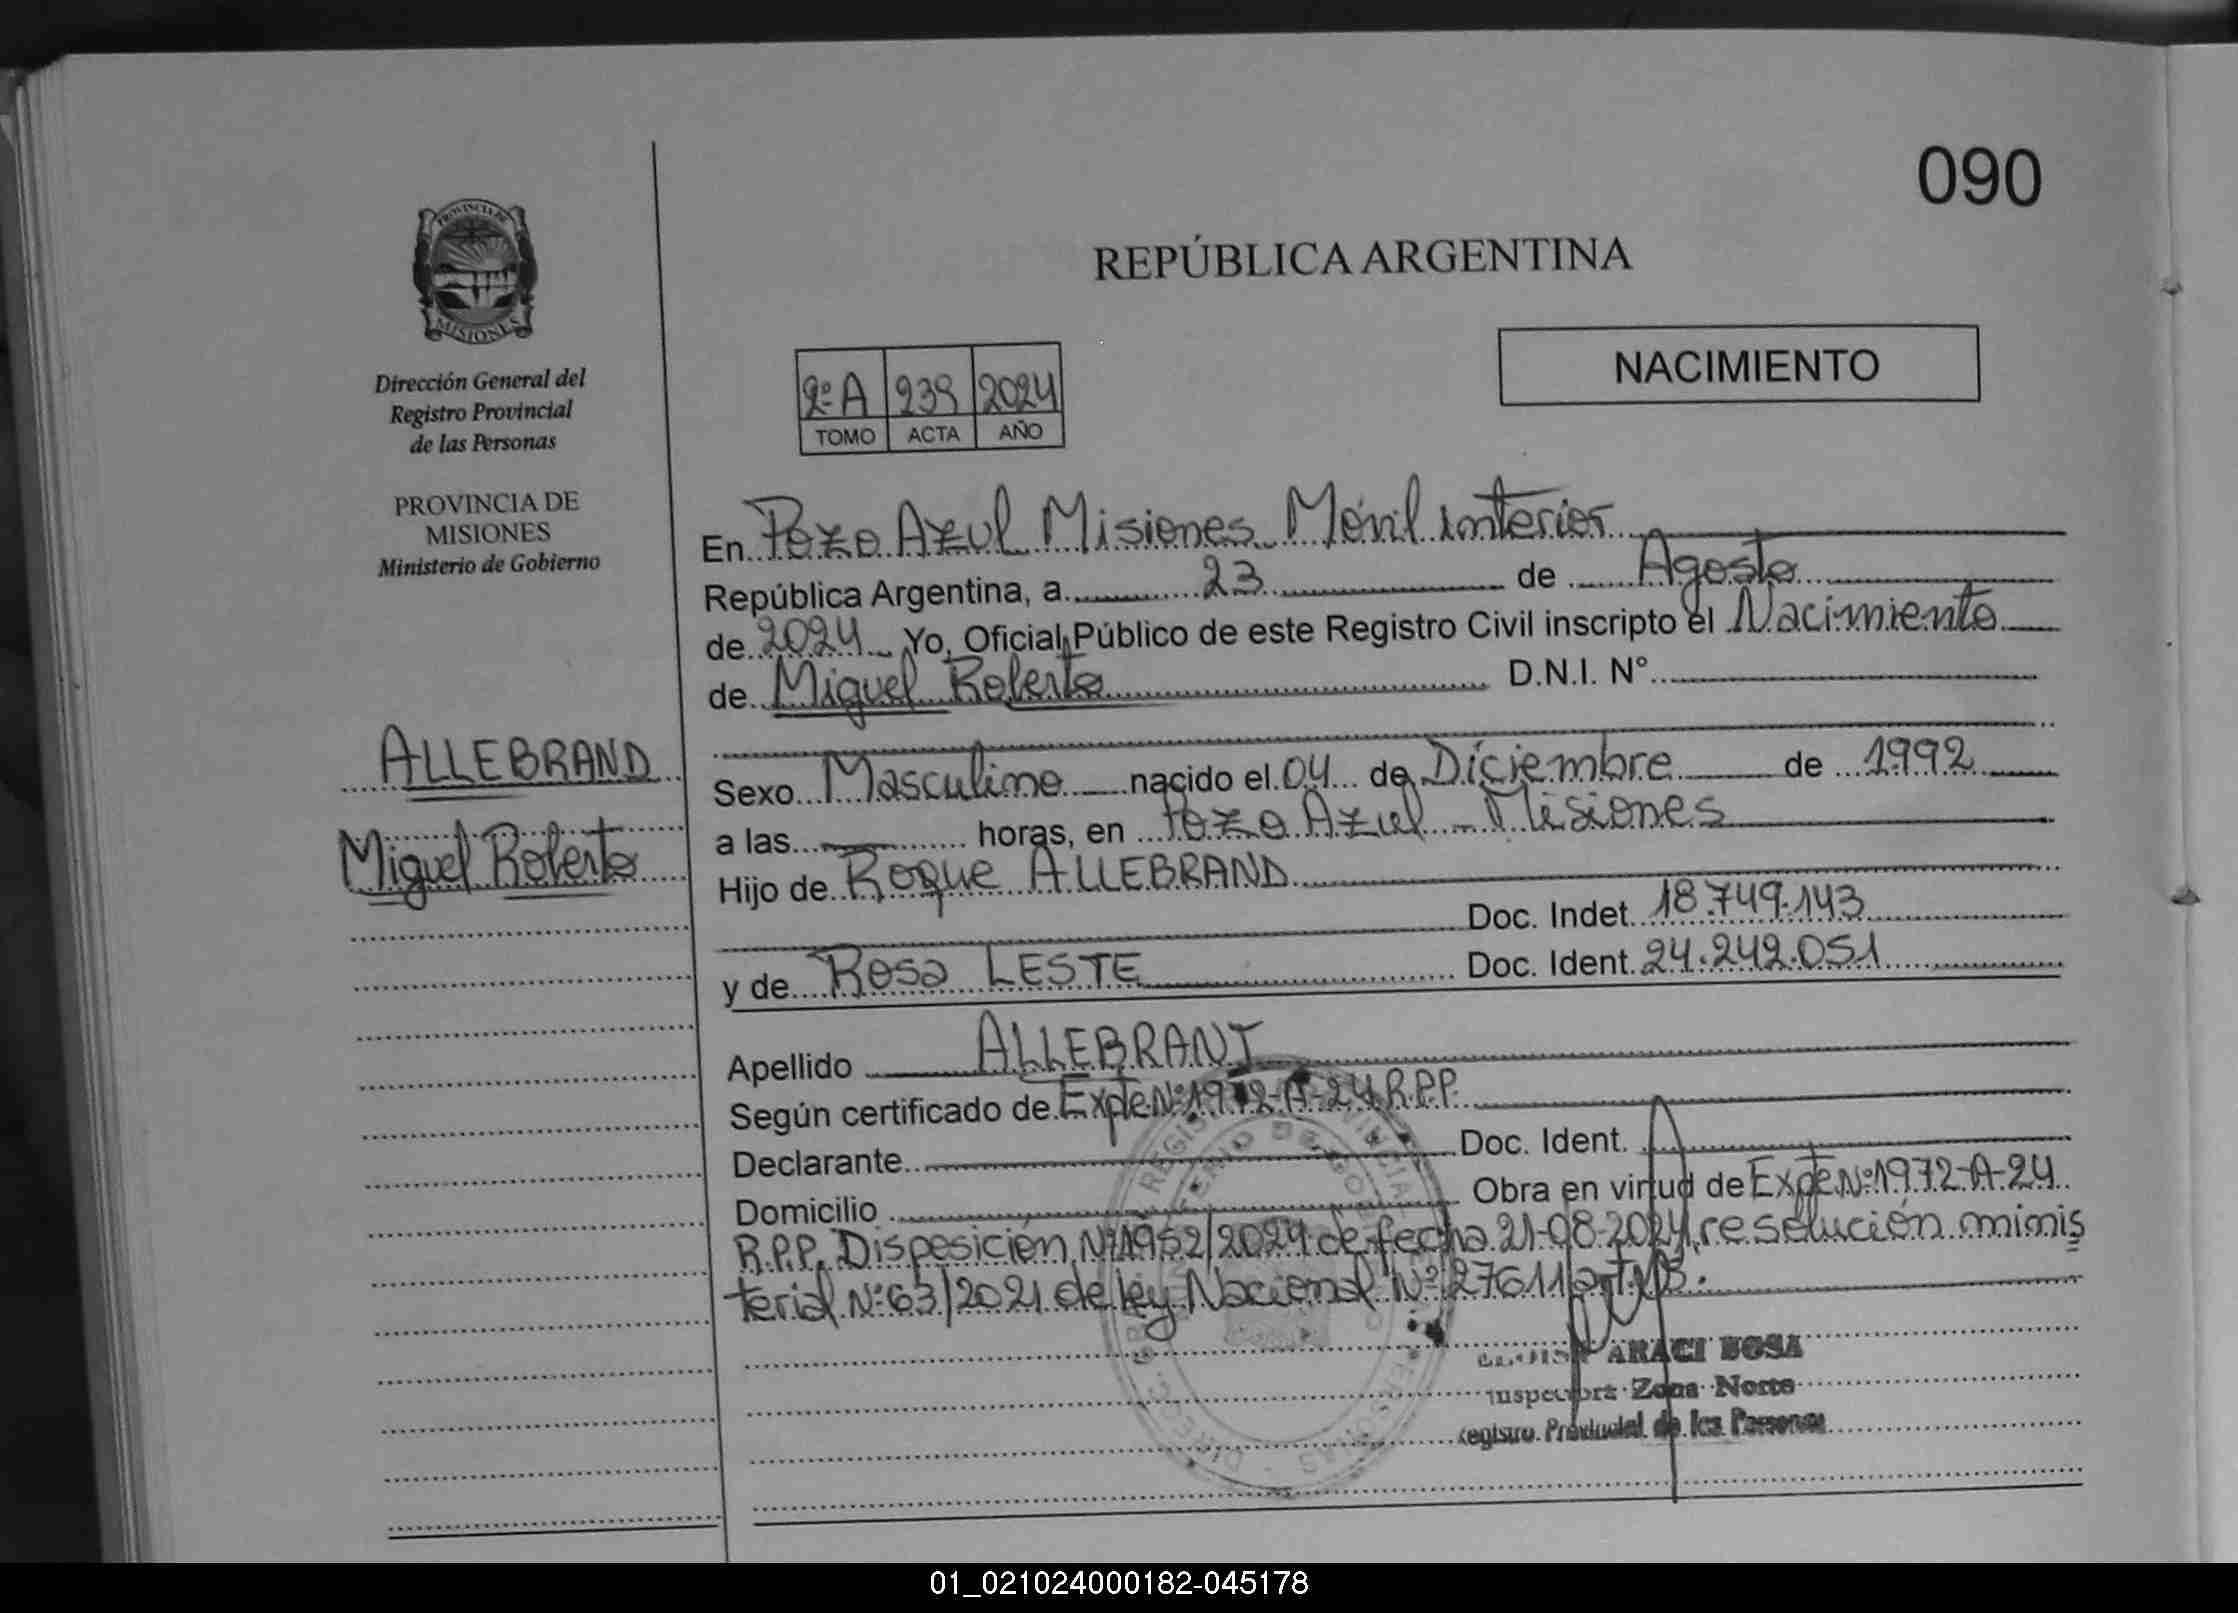 090
PROVINCIA DE
MISIONES
REPÚBLICA ARGENTINA
Dirección General del
Registro Provincial
de las Personas
PROVINCIA DE
MISIONES
Ministerio de Gobierno
NACIMIENTO
2º A 239 2024
TOMO ACTA AÑO
En Pozo Azul Misiones Móvil interior
República Argentina, a 23 de Agosto
de 2024 Yo, Oficial Público de este Registro Civil inscripto el Nacimiento
de Miguel Roberto D.N.I. Nº
ALLEBRAND
Miguel Roberto
Sexo Masculino nacido el 04 de Diciembre de 1992
a las horas, en Pozo Azul - Misiones
Hijo de Roque ALLEBRAND
Doc. Indet. 18.749.143
y de Rosa LESTE Doc. Ident. 24.242.051
Apellido ALLEBRANT
Según certificado de Expte Nº 1972-A-24 R.P.P.
Declarante Doc. Ident.
Domicilio Obra en virtud de Expte Nº 1972-A-24
R.P.P. Disposición Nº 1952/2024 de fecha 21-08-2024, resolución minis
terial Nº 63/2021 de ley Nacional Nº 27611
ARACI BOSA
Inspectora Zona Norte
Registro Provincial de las Personas
01_021024000182-045178